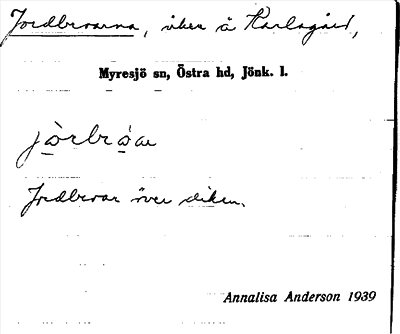 Jordbroarna, åker å Karlsgård,
Myresjö sn, Östra hd, Jönk. l.
jòrbròar
Jordbroar över diken.
Annalisa Anderson 1939